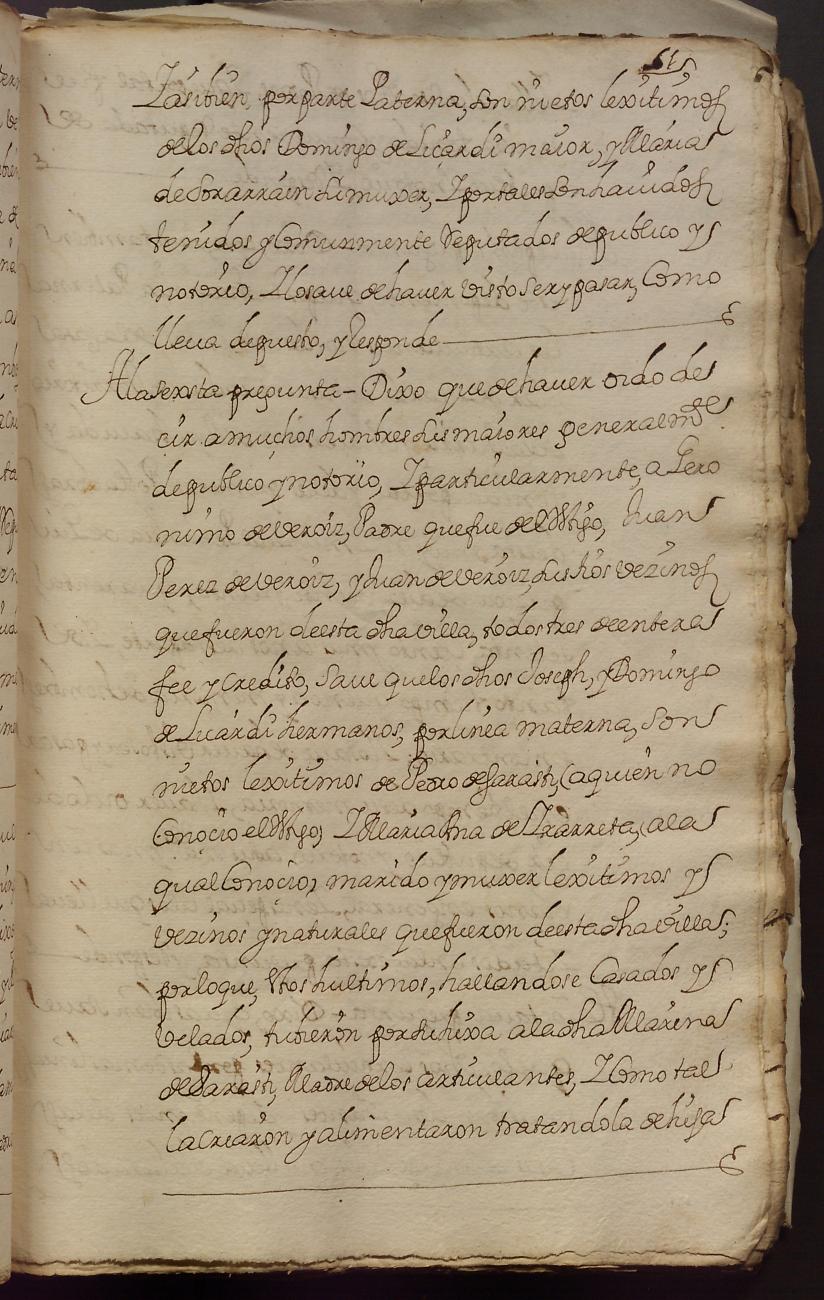 Yasibien, por parte Paterna, son nietos lexitimos
de los dhos Domingo de Licardi maior, y Maria
de Sorarrain su muxer, Y por tales son hauidos
tenidos y Comunmente Reputados de publico y
notorio, Y lo saue de hauer visto ser y pasar, Como
lleua depuesto, y Responde
A la sexsta pregunta - Dixo que de hauer oido de
cir a muchos hombres sus maiores generalmte
de publico y notorio, Y particularmente, a Gero
nimo de Veroiz, Padre que fue del Thgo, Juan
Perez de Veroiz, y Juan de Veroiz, sus hos vezinos
que fueron de esta dha villa, todos tres de entera
fee y credito, Saue que los dhos Joseph, y Domingo
de Licardi hermanos, por linea materna, Son
nietos lexitimos de Pedro de Sarasti, (a quien no
Conocio el Thgo) Y Maria Ana de Yrarreta, (a la
qual Conocio) marido y muxer lexitimos y
vezinos y naturales que fueron de esta dha villa;
por lo que, Vtos hultimos, hallandose Casados y
Velados, tubieron por su hixa a la dha Marina
de Sarasti, Madre de los articulantes, Y Como tal
la Criaron y alimentaron tratandola de hija